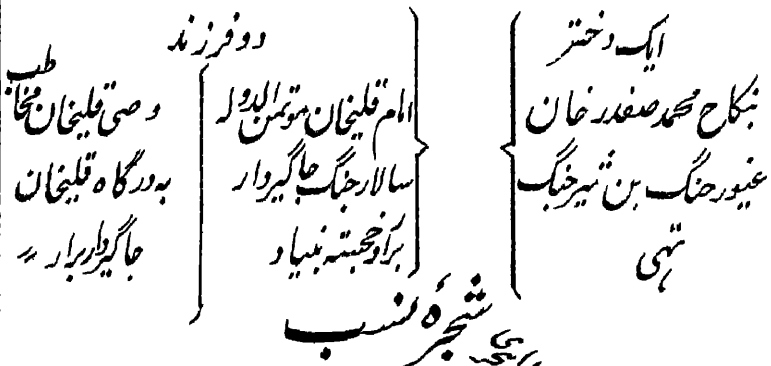 ایک دختر
بنکاح محمد صفدر خان
غیور جنگ بن شیر جنگ
تہی
دو فرزند
امام قلیخان موتمن الدولہ
سالار جنگ جاگیردار
برار خجستہ بنیاد
وصی قلیخان مخاطب
بہ درگاہ قلیخان
جاگیردار برار
شجرۂ نسب